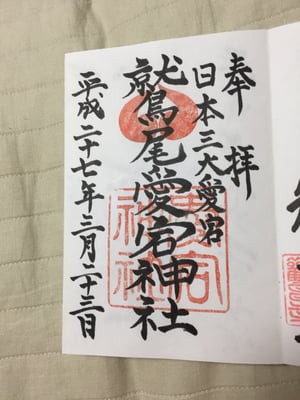 奉拝
日本三大愛宕
鷲尾愛宕神社
平成二十七年二月二十三日
愛宕神社